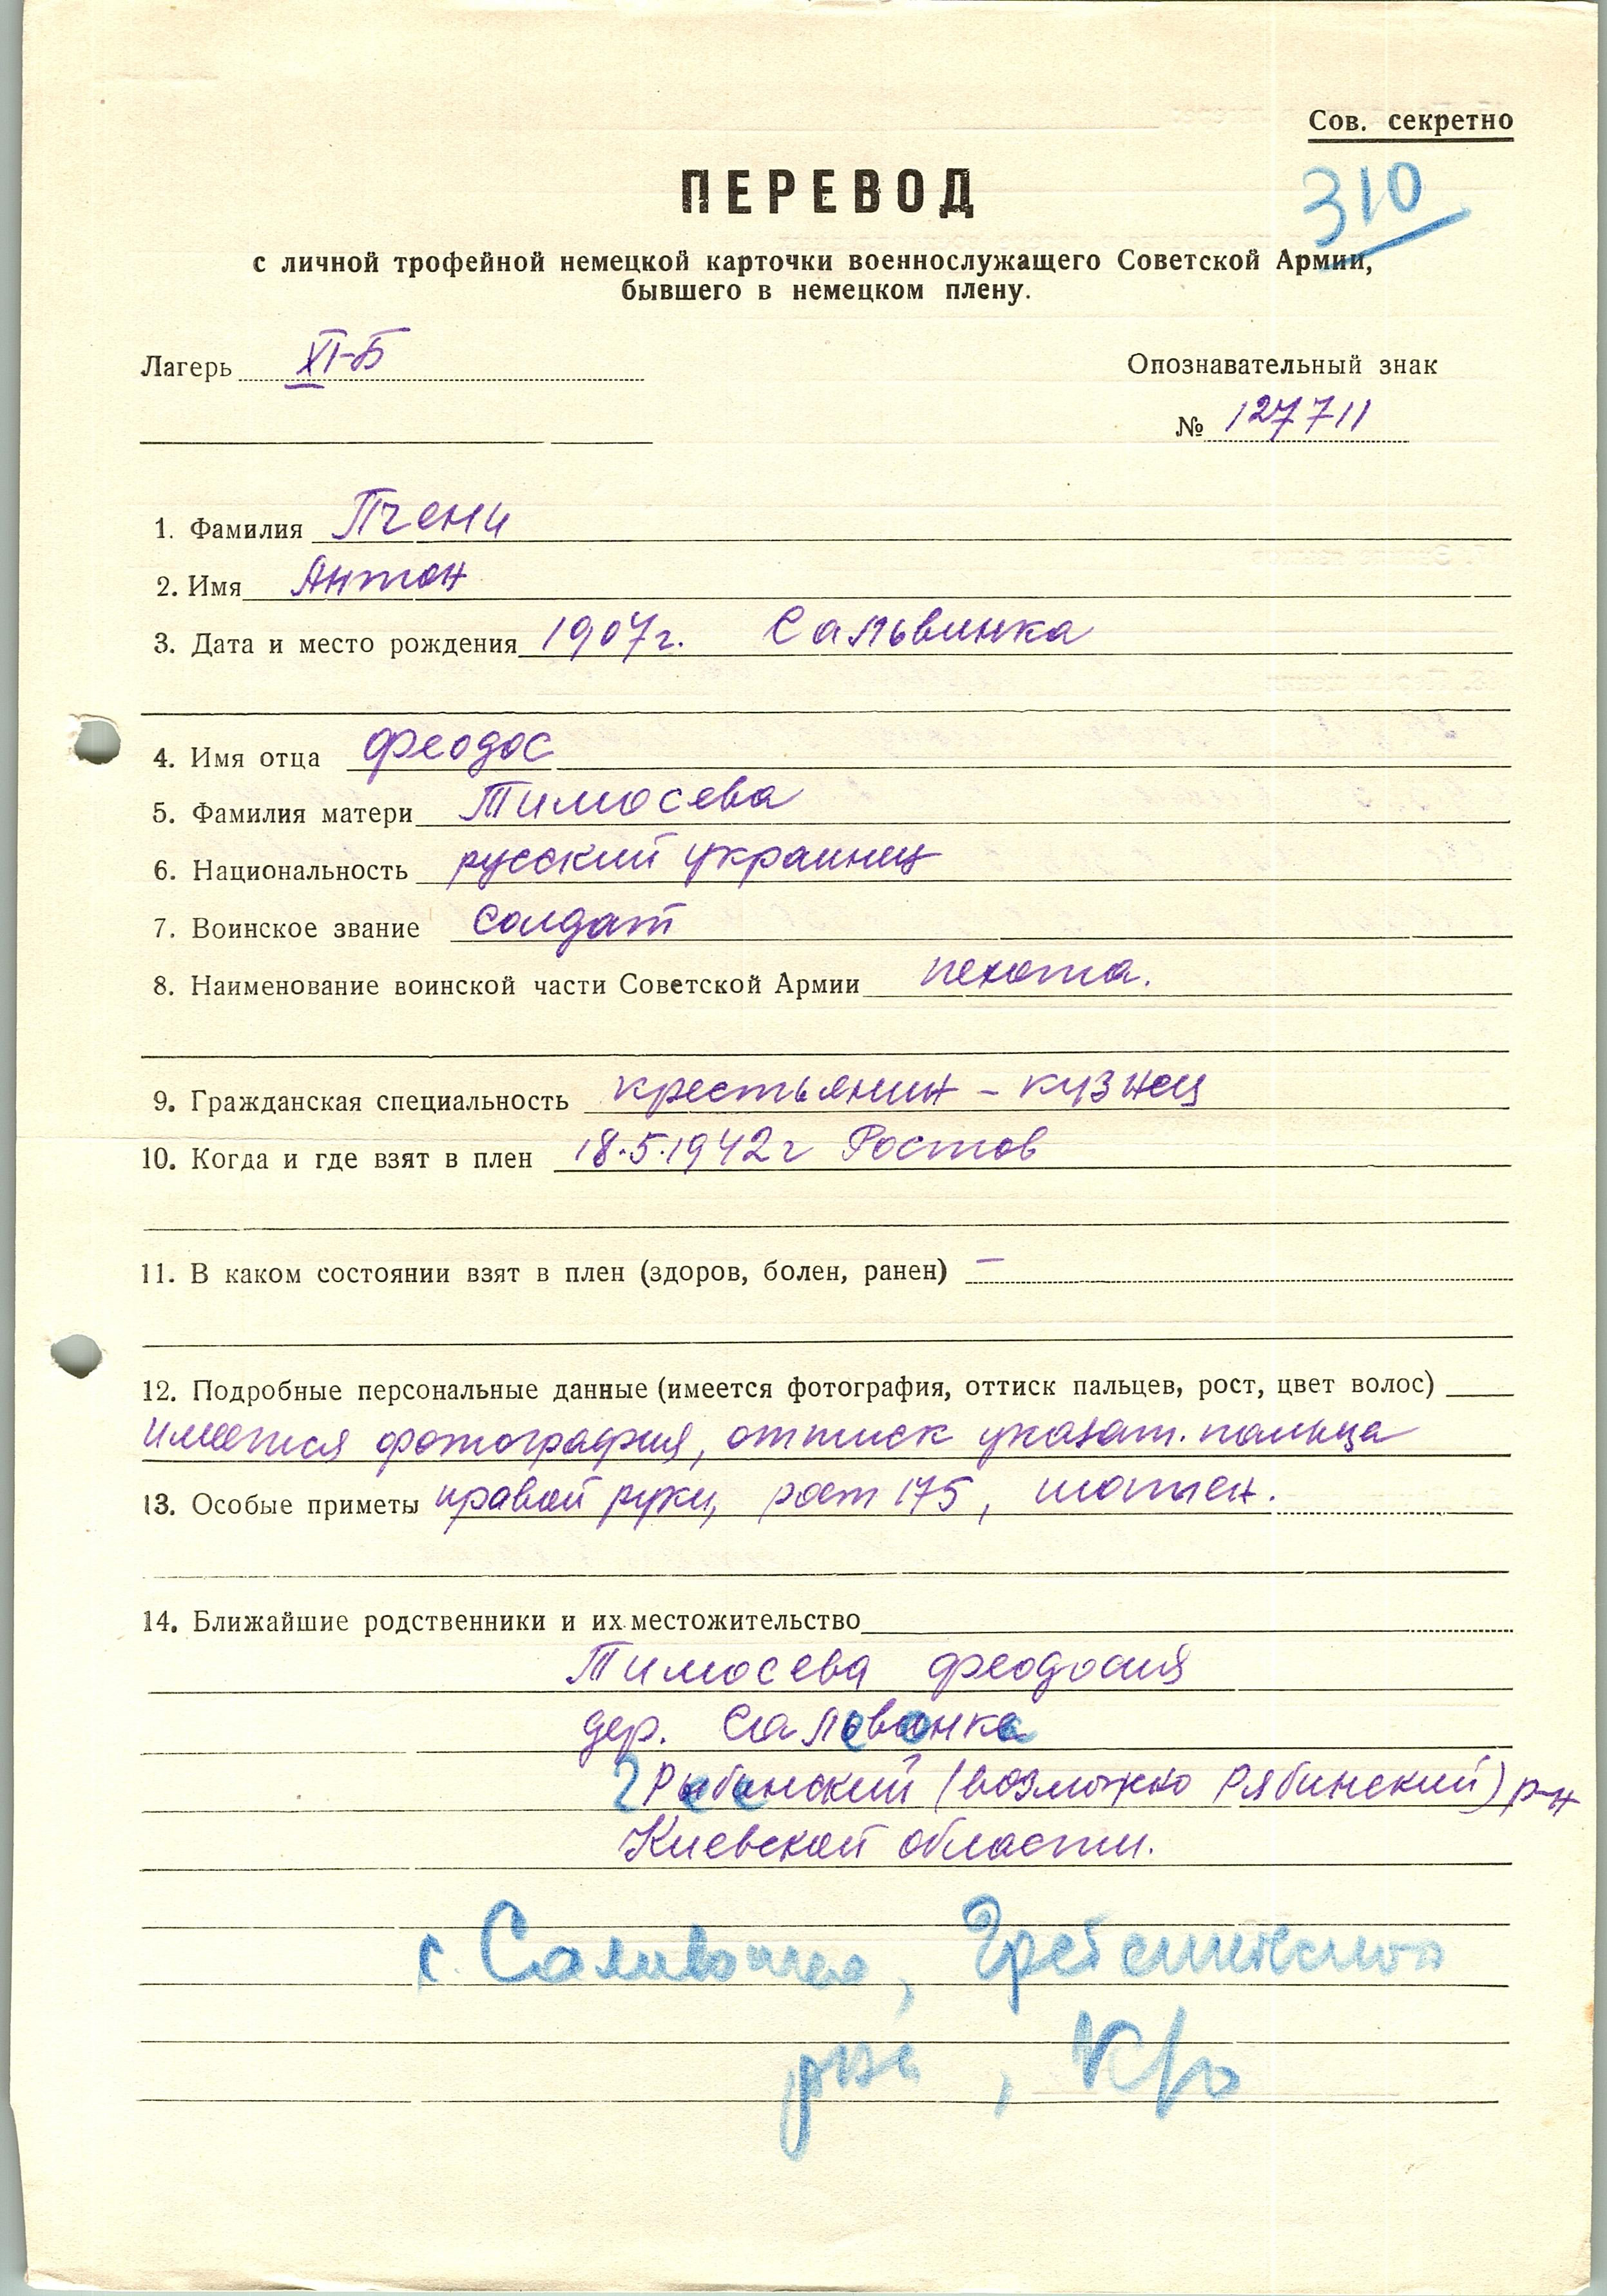 Сов. секретно
310
ПЕРЕВОД
с личной трофейной немецкой карточки военнослужащего Советской Армии,
бывшего в немецком плену.
Лагерь XI-Б
Опознавательный знак
№ 127711
1. Фамилия Пчени
2. Имя Антон
3. Дата и место рождения 1907г. Сальвинка
4. Имя отца Феодос
5. Фамилия матери Тимосева
6. Национальность русский украинец
7. Воинское звание солдат
8. Наименование воинской части Советской Армии пехота.
9. Гражданская специальность крестьянин - кузнец
10. Когда и где взят в плен 18.5.1942г Ростов
11. В каком состоянии взят в плен (здоров, болен, ранен) –
12. Подробные персональные данные (имеется фотография, оттиск пальцев, рост, цвет волос)
имеется фотография, оттиск указат. пальца
13. Особые приметы правой руки, рост 175, шатен.
14. Ближайшие родственники и их местожительство
Тимосева Феодосия
дер.
(возможно Рябинский) р-н
Киевской области.
с.